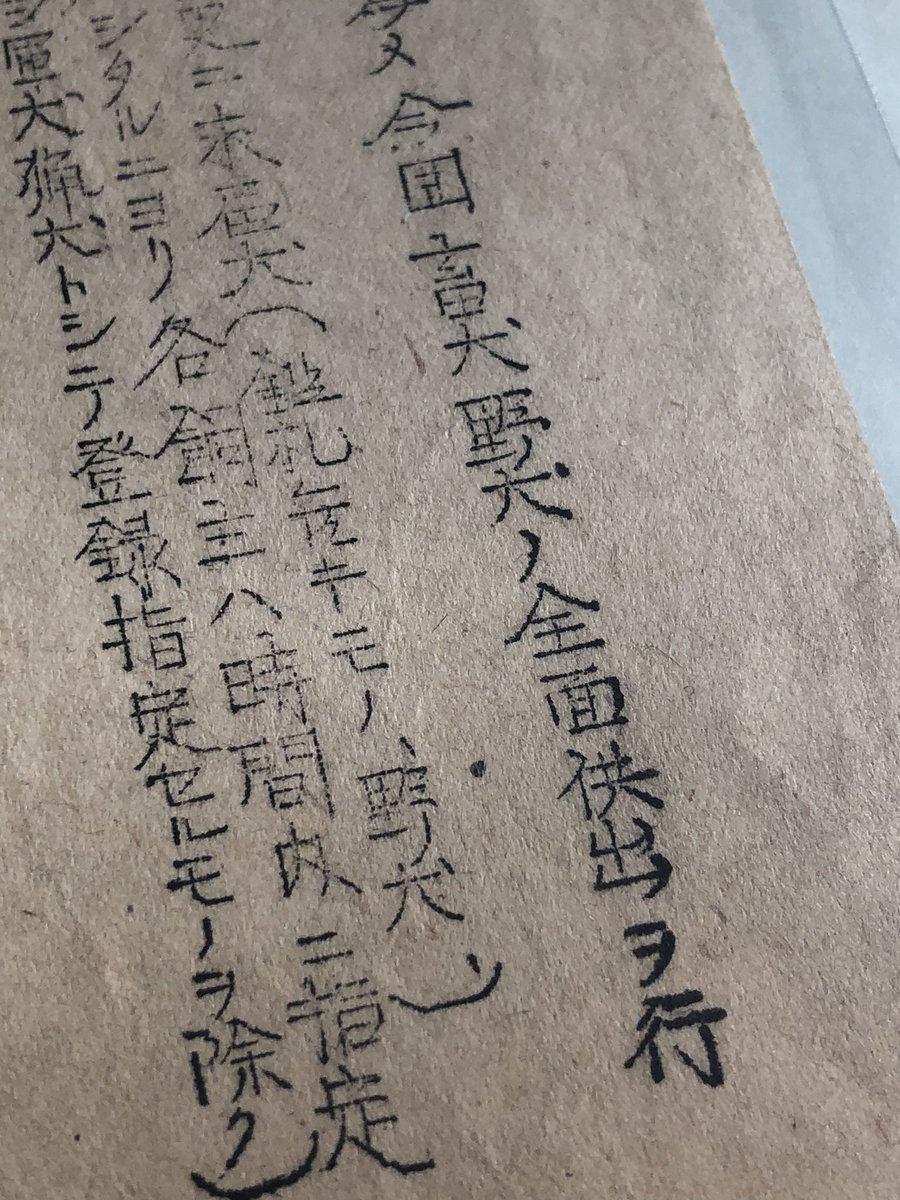 ヌ 今回畜犬野犬ノ全面供出ヲ行
更ニ未届犬(鑑札無キモノ、野犬)
シタルニヨリ各飼主ハ時間内ニ指定
軍犬猟犬トシテ登録指定セルモノヲ除ク)